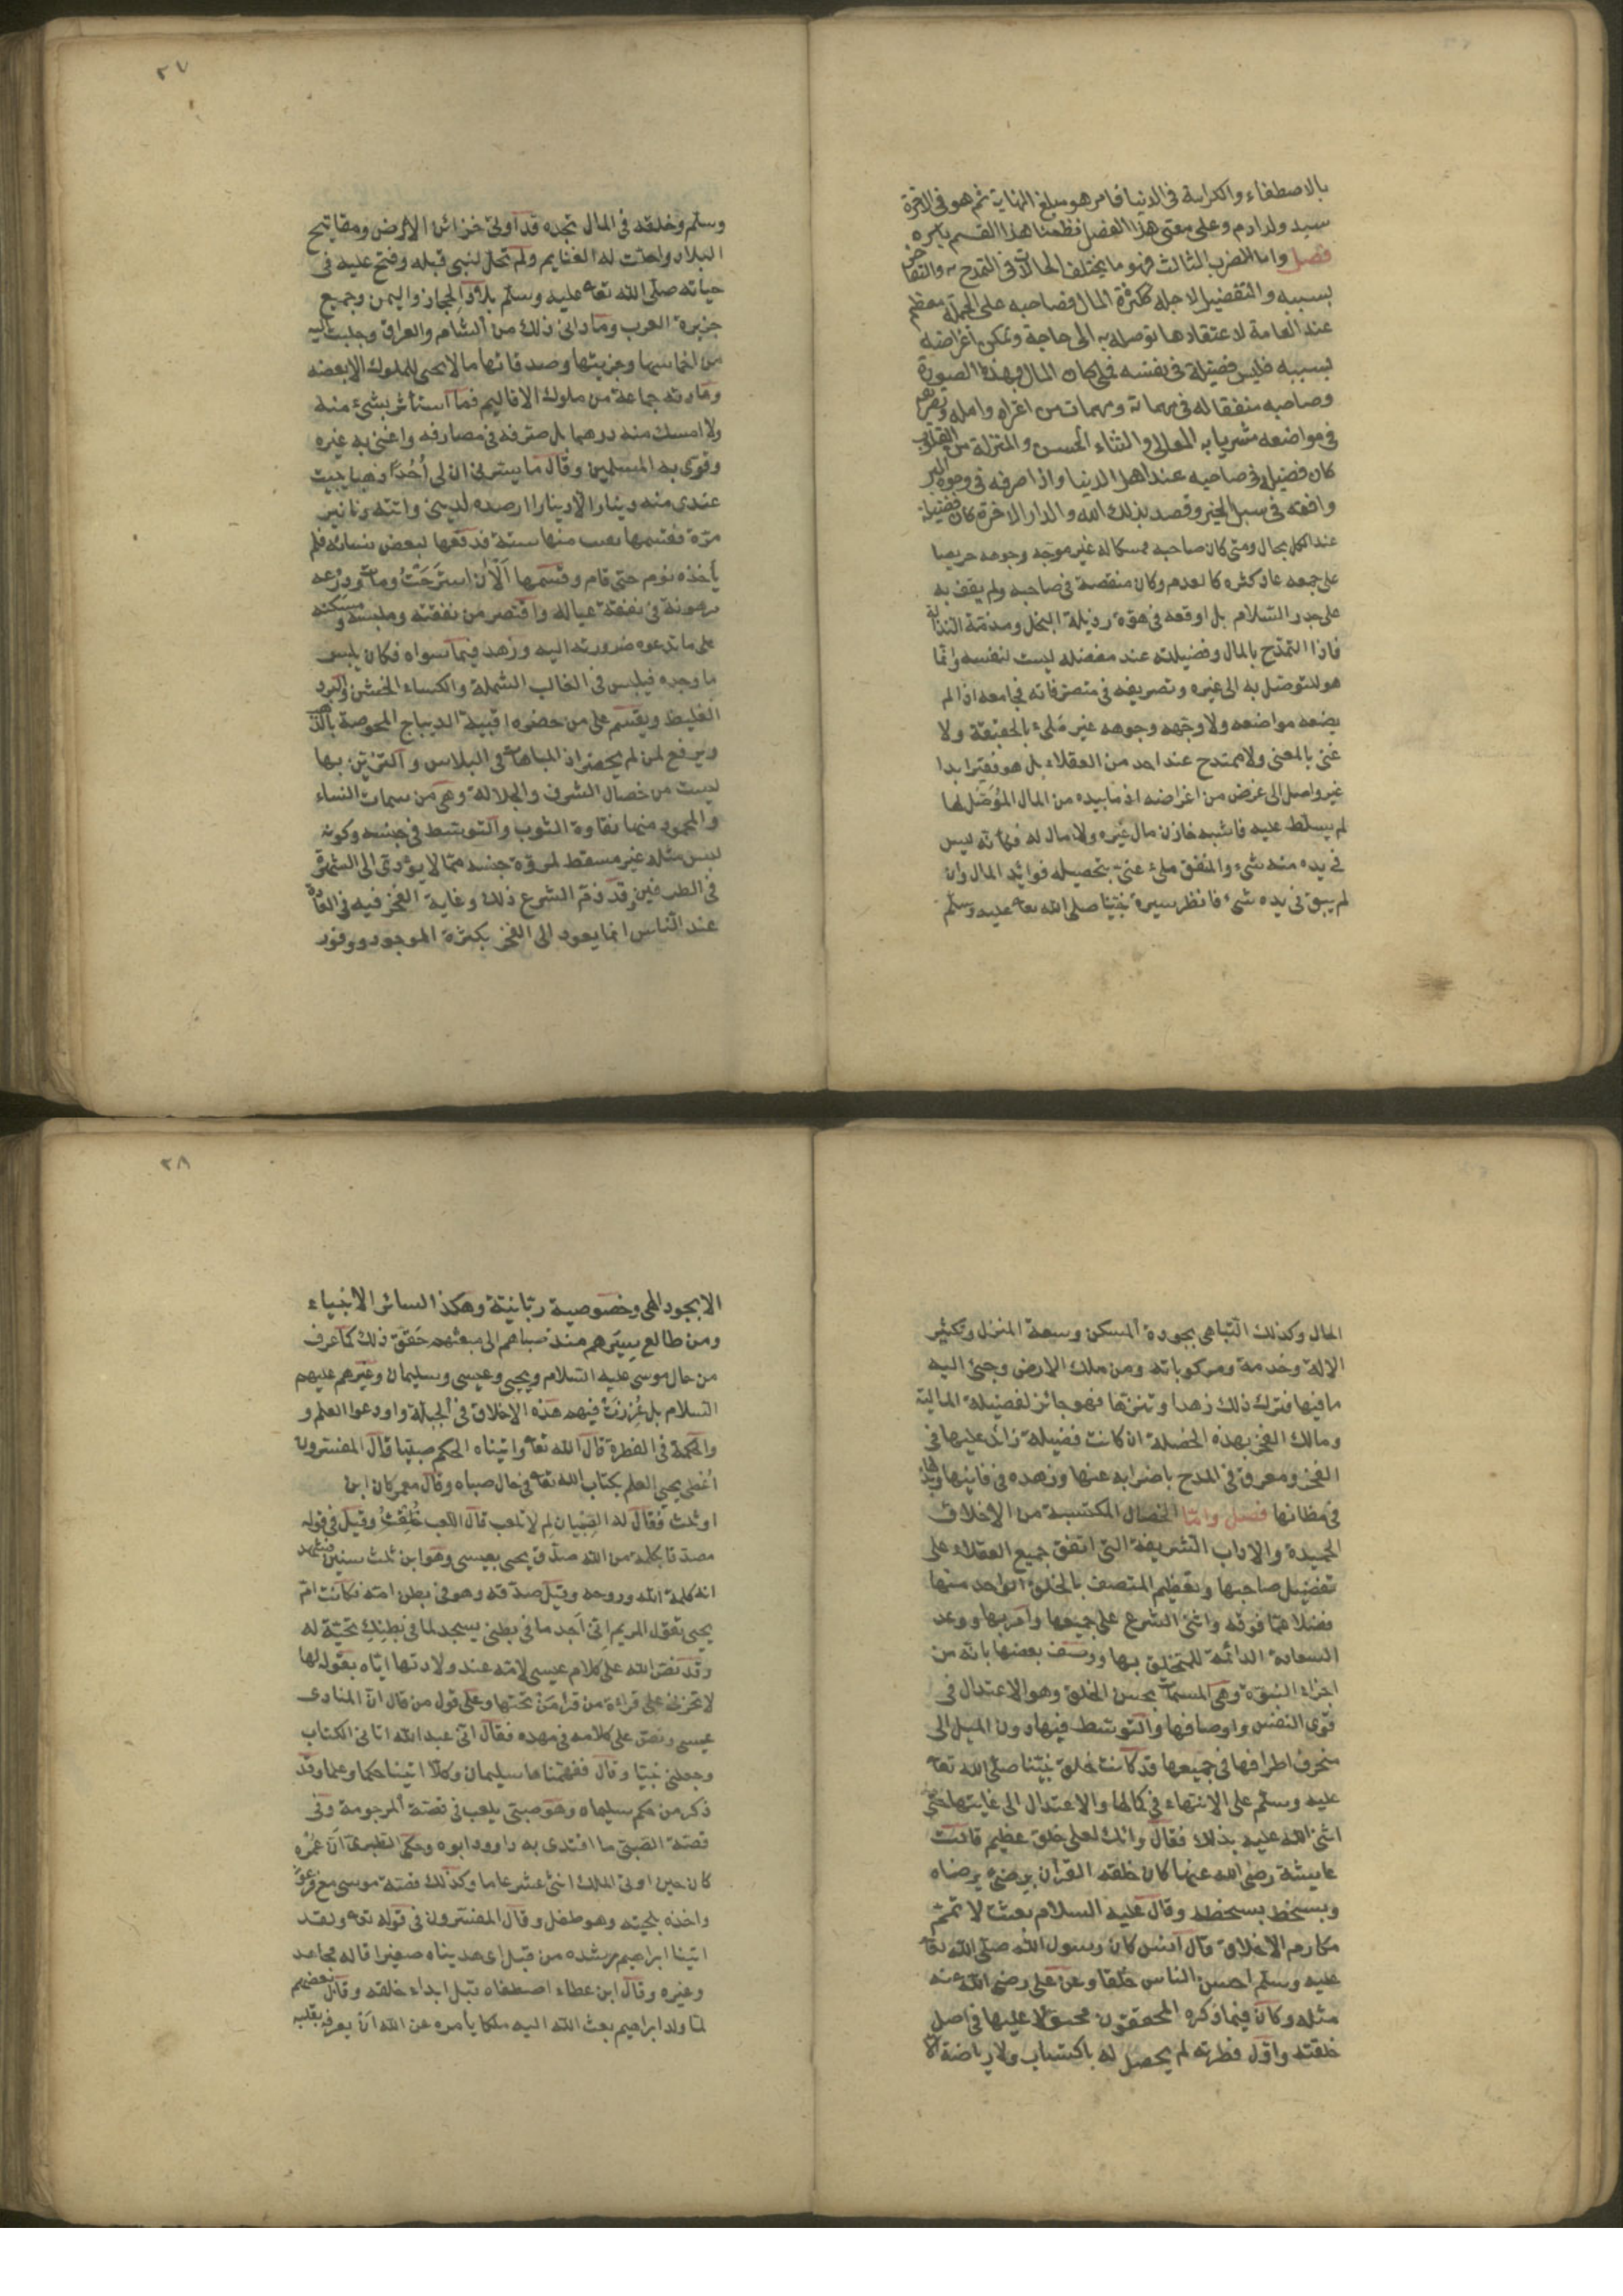 بالاصطفاء والكرامة فى الدنيا فامر هو مبلغ النهاية ثم هو فى الاخرة
سيد ولد ادم وعلى معنى هذا الفصل نظمنا هذا القسم باسره
فصل واما الضرب الثالث فهو ما يختلف الحالات فى التمدح به والتفاخر
بسببه والتفضيل لاجله ككثرة المال فصاحبه على الجملة معظم
عند العامة لاعتقادها توصله به الى حاجة وتمكن اغراضه
بسببه فليس فضيلة فى نفسه فمتى كان المال بهذه الصورة
وصاحبه منفقا له فى مهماته ومهمات من اعتراه وامله وتصريفه
فى مواضعه مشتريا به المعالى والثناء الحسن والمنزلة من القلوب
كان فضيلة فى صاحبه عند اهل الدنيا واذا صرفه فى وجوه البر
وانفقه فى سبل الخير وقصد بذلك الله والدار الاخرة كان فضيلة
عند الكل بحال ومتى كان صاحبه ممسكا له غير موجه وجوهه حريصا
على جمعه عاد كثره كالعدم وكان منقصة فى صاحبه ولم يقف به
على جدد السلام بل اوقعه فى هوّة رذيلة البخل ومذمّة النذالة
فاذا التمدّح بالمال وفضيلته عند مفضله ليست لنفسه وانّما
هو للتوصّل به الى غيره وتصريفه فى متصرّفاته فجامعه اذا لم
يضعه مواضعه ولا وجّهه وجوهه غير مَلىء بالحقيقة ولا
غنى بالمعنى ولا ممتدح عند احد من العقلاء بل هو فقير ابدا
غير واصل الى غرض من اغراضه اذ ما بيده من المال المُوَصّل لها
لم يسلّط عليه فاشبه خازن مال غيره ولا مال له فكانّه ليس
فى يده منه شىء والمنفق ملىء غنىّ بتحصيله فوائد المال وان
لم يبق فى يده شىء فانظر سيرة نبيّنا صلى الله تعا عليه وسلّم
وسلّم وخلقه فى المال تجده قد اوتى خزائن الارض ومفاتيح
البلاد واحلت له الغنايم ولم تحلّ لنبى قبله وفتح عليه فى
حياته صلّى الله تعا عليه وسلّم بلاد الحجاز واليمن وجميع
جزيرة العرب وما دانى ذلك من الشام والعراق وجلبت اليه
من اخماسها وجزيتها وصدقاتها ما لا يجبى للملوك الا بعضه
وهادته جماعة من ملوك الاقاليم فما استاثر بشىء منه
ولا امسك منه درهما بل صرّفه فى مصارفه واغنى به غيره
وقوّى به المسلمين وقال ما يسرنى ان لى اُحُدًا ذهبا يبيت
عندى منه دينار الا دينارا ارصده لدينى واتته دنانير
مرّة فقسمها وبقيت منها ستة فدفعها لبعض نسائه فلم
يأخذه نوم حتى قام وقسمها اَلْاٰن استرَحْتُ ومات ودِرْعه
مرهونة فى نفقة عياله واقتصر من نفقته وملبسه ومسكنه
على ما تدعوه ضرورته اليه وزهد فيما سواه فكان يلبس
ما وجده فيلبس فى الغالب الشملة والكساء الخشن والبرد
الغليظ ويقسم على من حضره اقبية الديباج المخوصة بالذهب
ويرفع لمن لم يحضر اذ المباهاة فى الملابس والتزيّن بها
ليست من خصال الشرف والجلالة وهى من سمات النساء
والمحمود منها نقاوة الثوب والتوسّط فى جنسه وكونه
لبس مثله غير مسقط لمروّة جنسه ممّا لا يؤدّى الى الشهرة
فى الطرفين وقد ذمّ الشرع ذلك وغاية الفخر فيه فى العادة
عند النّاس انما يعود الى الفخر بكثرة الموجود ووفور
الحال وكذلك التّباهى بجودة المسكن وسعة المنزل وتكثير
الاته وخدمه ومركوباته ومن ملك الارض وجبى اليه
ما فيها فترك ذلك زهدا وتنزّها فهو جائز لفضيلة المالية
ومالك الفخر بهذه الخصلة ان كانت فضيلة زائد عليها فى
الفخر ومعرق فى المدح باضرابه عنها وزهده فى فانيها وبذلها
فى مظانها فصل وامّا الخصال المكتسبة من الاخلاق
الحميدة والاداب الشريفة التى اتفق جميع العقلاء على
تفضيل صاحبها وتعظيم المتصف بالخلق الواحد منها
فضلا عمّا فوقه واثنى الشرع على جميعها وامر بها ووعد
السعادة الدائمة للمتخلق بها ووصف بعضها بانّه من
اجزاء النبوّة وهى المسمّاة بحسن الخلق وهو الاعتدال فى
قوى النفس واوصافها والتوسّط فيها دون الميل الى
منحرف اطرافها فى جميعها قد كانت خلق نبيّنا صلّى الله تعا
عليه وسلّم على الانتهاء فى كمالها والاعتدال الى غايتها حتى
اثنى الله عليه بذلك فقال وانك لعلى خلق عظيم قالت
عايشة رضى الله عنها كان خلقه القرآن يرضى برضاه
ويسخط بسخطه وقال عليه السلام بعثت لاتمّم
مكارم الاخلاق قال انس كان رسول الله صلّى الله تعا
عليه وسلّم احسن الناس خلقا وعن على رضى الله عنه
مثله وكان فيما ذكره المحققون مجبولا عليها فى اصل
خلقته واوّل فطرته لم يحصل له باكتساب ولا رياضة الا
الا بجود الهى وخصوصية ربّانيّة وهكذا لسائر الانبياء
ومن طالع سِيَرهم منذ صباهم الى مبعثهم حَقّقَ ذلك كما عرف
من حال موسى عليه السلام ويحيى وعيسى وسليمان وغيرهم عليهم
السلام بل غُرزت فيهم هذه الاخلاق فى الجبلّة واودعوا العلم و
والحكمة فى الفطرة قال الله تعا واتيناه الحكم صبيّا قال المفسّرون
اُعْطى يحيى العلم بكتاب الله تعا فى حال صباه وقال معمر كان ابن
او ثلث فقال له الصِبْيان لِم لا تلعب قال اللعب خُلِقْتُ وقيل فى قوله
مصدقا بكلمة من الله صدّق يحيى بعيسى وهو ابن ثلث سنين فشهد
انه كلمة الله وروحه وقيل صدّقه وهو فى بطن امّه فكانت امّ
يحيى تقول لمريم اِنّى اَجد ما فى بطنى يسجد لما فى بطنكِ تحيّة له
وقد نصّ الله على كلام عيسى لامّه عند ولادتها ايّاه بقوله لها
لا تحزنى على قراءة من قرا مَنْ تحتها وعلى قول من قال انّ المنادى
عيسى ونصّ على كلامه فى مهده فقال انّى عبد الله اتانى الكتاب
وجعلنى نبيّا وقال ففهّمناها سليمان وكلّا اتينا حكما وعلما وقد
ذكر من حكم سليمان وهو صبىّ يلعب فى قصّة المرجومة وفى
قصّة الصبىّ ما اقتدى به داوود ابوه وحكى الطبرىّ اَنّ عُمُره
كان حين اوتى الملك اثنى عشر عاما وكذلك قصّة موسى مع فرعون
واخذه بلحيته وهو طفل وقال المفسّرون فى قوله تعا ولقد
اتينا ابراهيم رشده من قبل اى هديناه صغيرا قاله مجاهد
وغيره وقال ابن عطاء اصطفاه قبل ابداء خلقه وقال بعضهم
لمّا ولد ابراهيم بعث الله اليه ملكا يأمره عن الله اَنْ يعرفه بقلبه